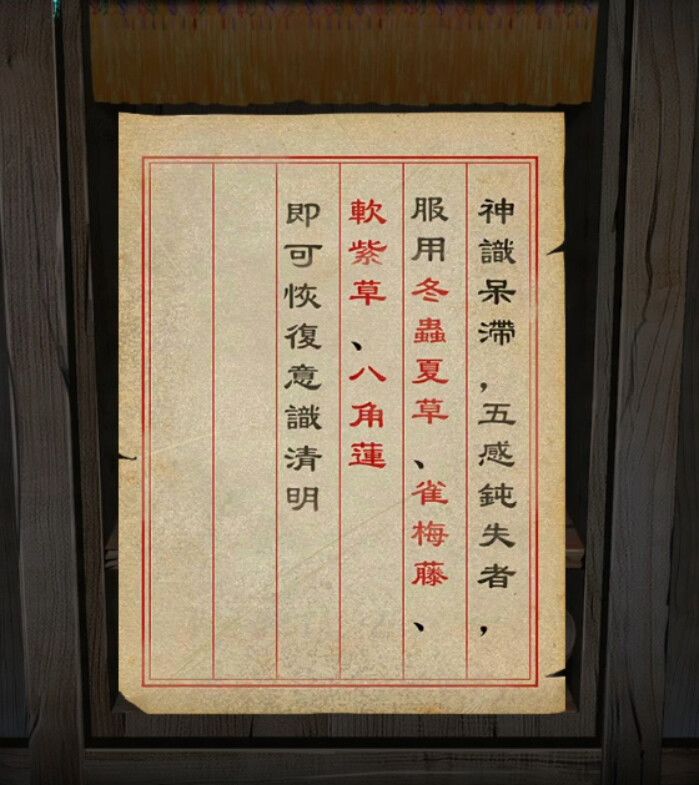 神識呆滯，五感鈍失者，
服用冬蟲夏草、雀梅藤、
軟紫草、八角蓮
即可恢復意識清明